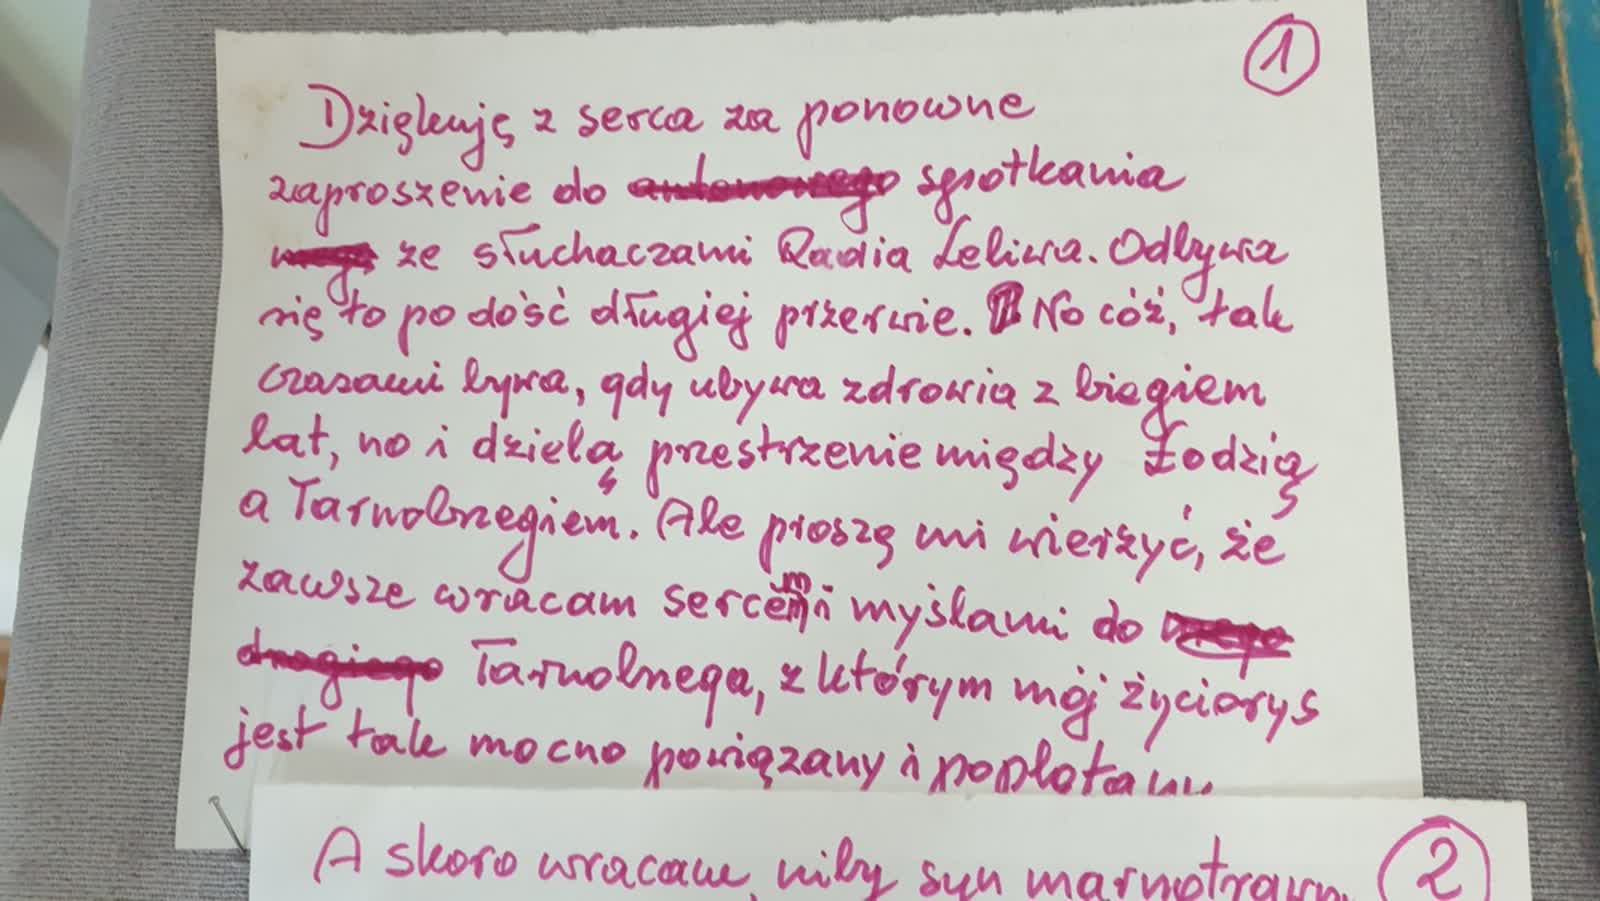 1
Dziękuję z serca za ponowne
zaproszenie do antenowego spotkania
ze słuchaczami Radia Leliwa. Odbywa
się to po dość długiej przerwie. No cóż, tak
czasami bywa, gdy ubywa zdrowia z biegiem
lat, no i dzielą przestrzenie między Łodzią
a Tarnobrzegiem. Ale proszę mi wierzyć, że
zawsze wracam sercem i myślami do
drogiego Tarnobrzega, z którym mój życiorys
jest tak mocno powiązany i poplątany
2
A skoro wracam, niby syn marnotrawny